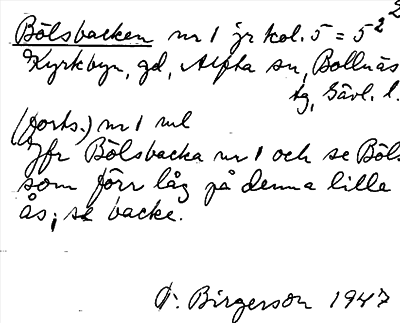 Bölsbacken nr 1 jr kol. 5 = 5² 2
Kyrkbyn, gd, Alfta sn, Bollnäs
tg, Gävl. l.
(forts.) nr 1 ml
Jfr Bölsbacka nr 1 och se Böls
som förr låg på denna lilla
ås; se backe.
V. Birgerson 1947